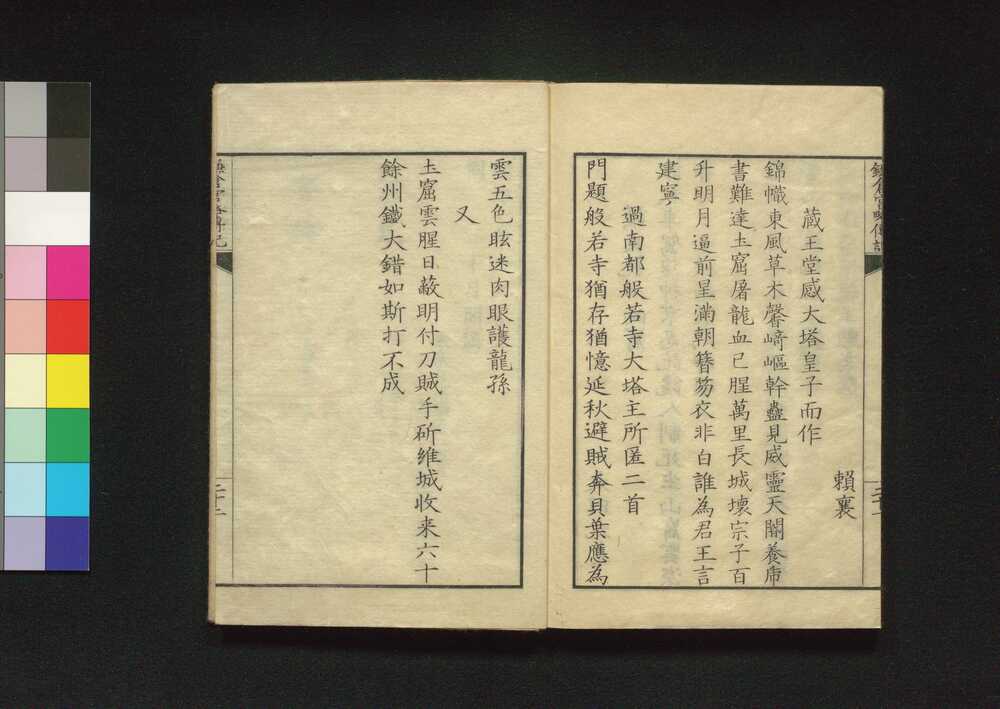 頼襄
蔵王堂感大塔皇子而作
錦幟東風草木馨﨑嶇幹蠱見威靈天閽養虎
書難達土窟屠龍血已腥萬里長城壞宗子百
升明月逼前星滿朝簪笏衣非白誰為君王言
建寧
過南都般若寺大塔主所匿二首
門題般若寺猶存猶憶延秋避賊奔貝葉應為
雲五色眩迷肉眼護龍孫
又
土窟雲腥日蔽明付刀賊手斫維城收来六十
餘州鐵大錯如斯打不成